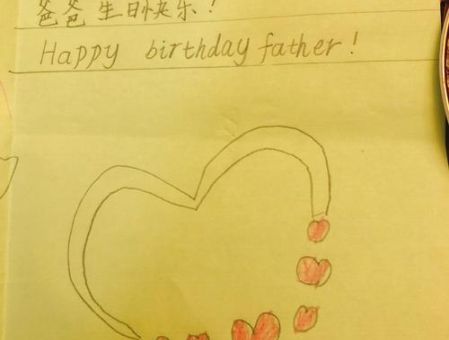 爸爸生日快乐！
Happy birthday father!